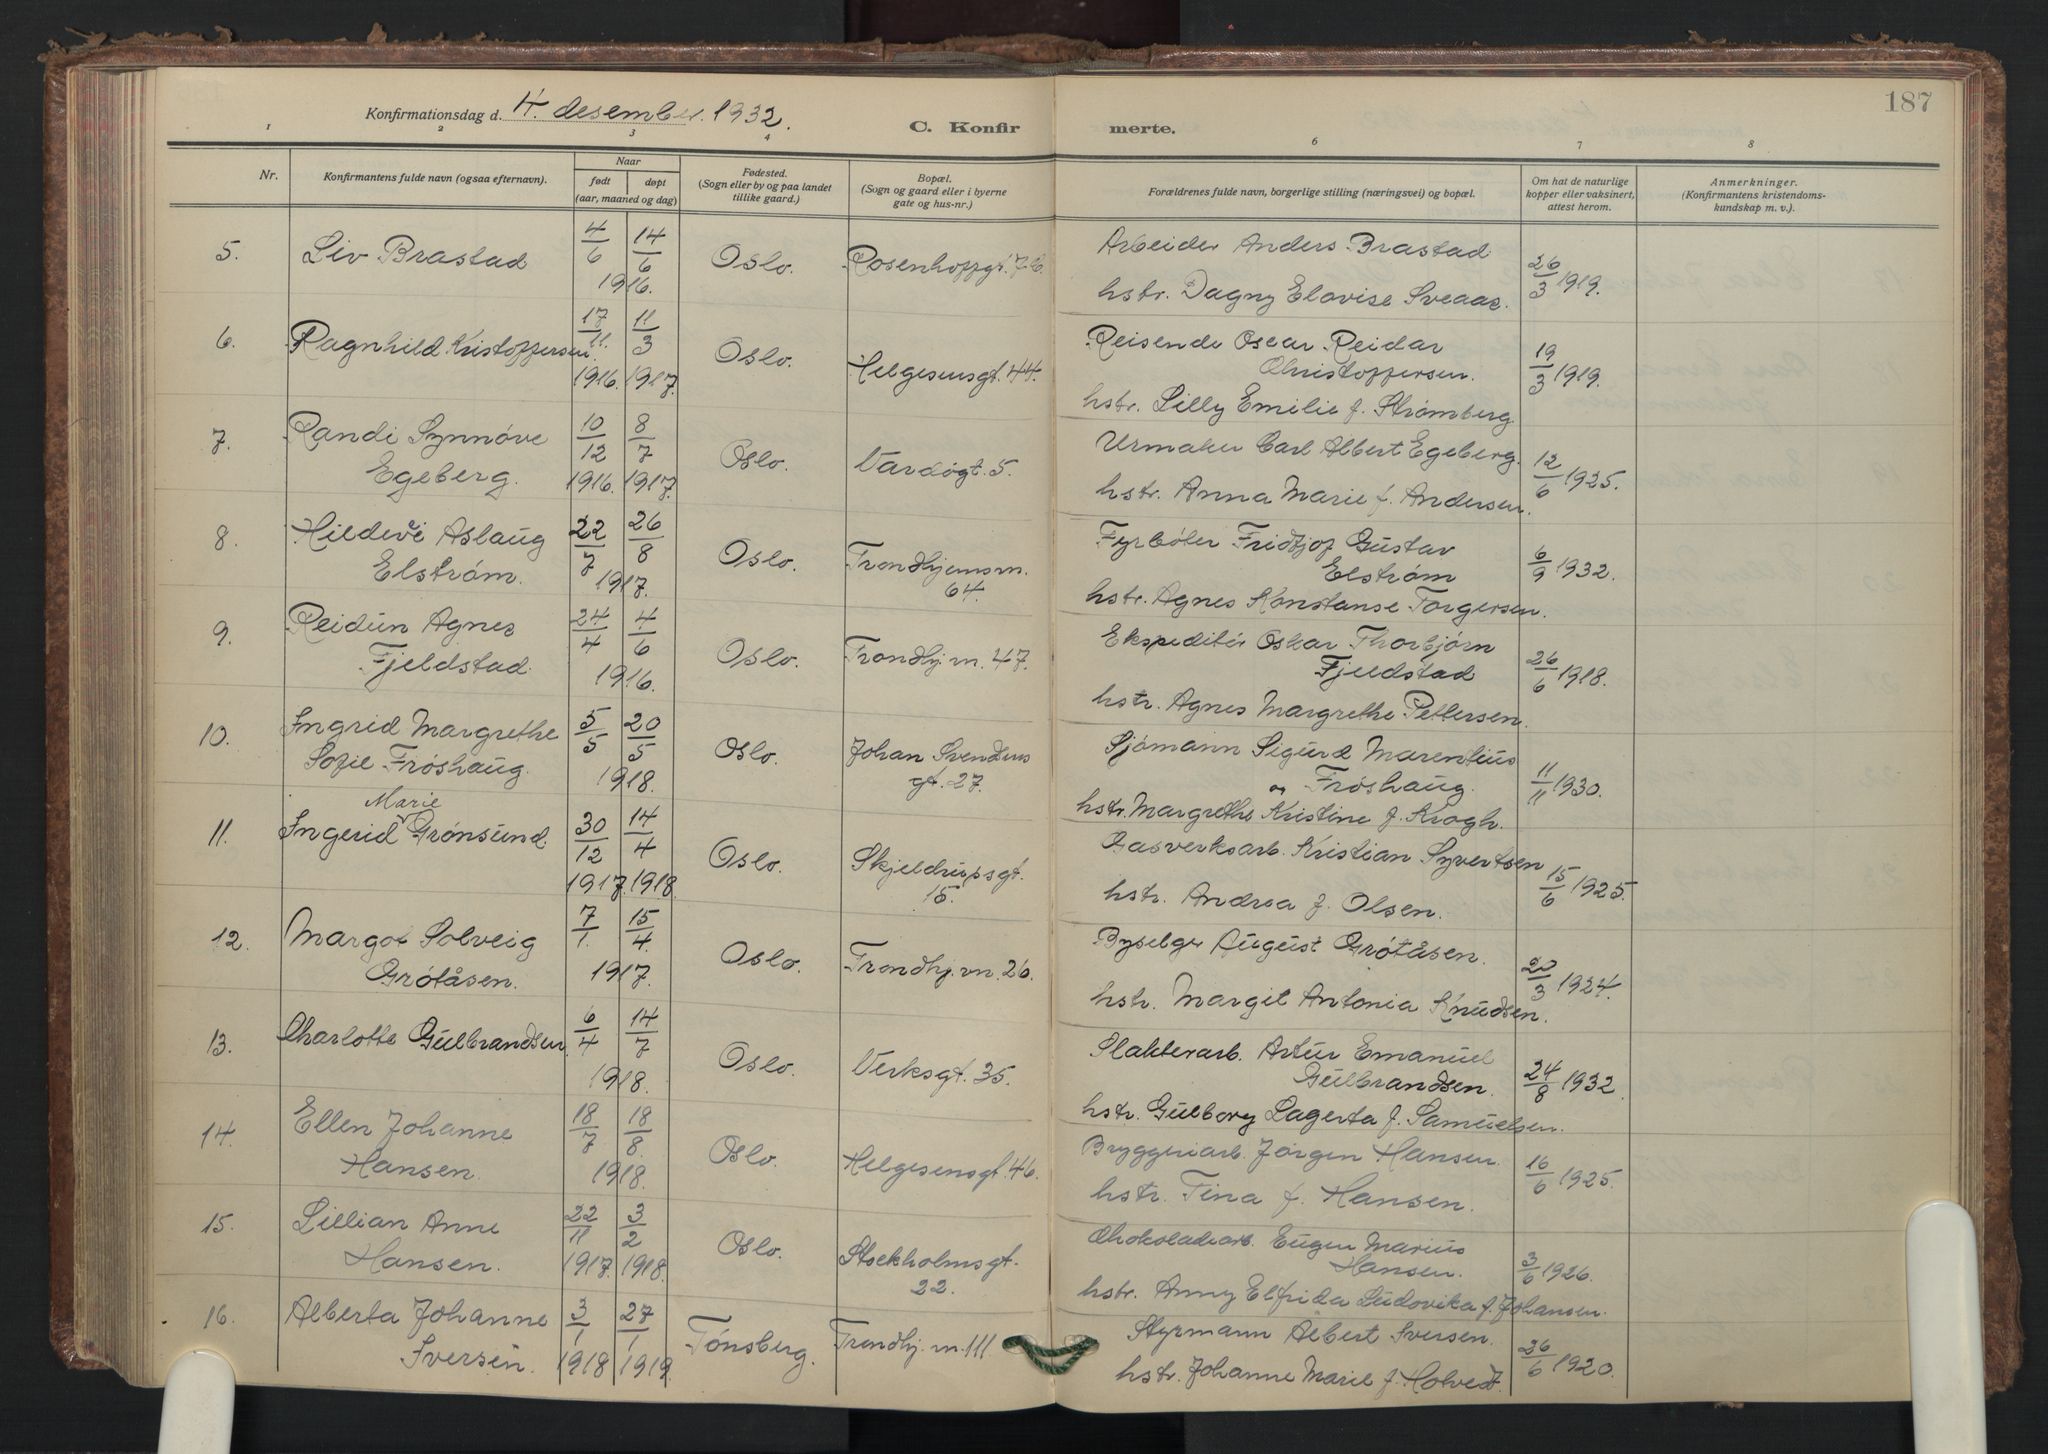 187
Konfirmationsdag d. 4. desember 1932.
C. Konfirmerte.
1 2 3 4 6 7 8
Nr.
Konfirmantens fulde navn (ogsaa efternavn).
Naar
født døpt
(aar, maaned og dag)
Fødested.
(Sogn eller by og paa landet
tillike gaard.)
Bopæl.
(Sogn og gaard eller i byerne
gate og hus-nr.)
Forældrenes fulde navn, borgerlige stilling (næringsvei) og bopæl.
Om hat de naturlige
kopper eller vaksinert,
attest herom.
Anmerkninger.
(Konfirmantens kristendoms-
kundskap m. v.).
5. Liv Brastad 4/6 14/6 1916. Oslo. Rosenhoffgt. 7b. Arbeider Anders Brastad
hstr. Dagny Elovise Sveaas. 26/3 1919.
6. Ragnhild Kristoffersen 17/11. 1916. 11/3 1917. Oslo. Helgesensgt. 44. Reisende Oscar Reidar
Christoffersen.
hstr. Lilly Emilie f. Strømberg. 19/3 1919.
7. Randi Synnöve
Egeberg. 10/12 1916. 8/7 1917. Oslo. Vardøgt. 5. Urmaker Carl Albert Egeberg.
hstr. Anna Marie f. Andersen. 12/6 1925.
8. Hildevi Aslaug
Elström. 22/7 26/8 1917. Oslo. Trondhjemsvn.
64. Fyrbøter Fridtjof Gustav
Elström
hstr. Agnes Konstanse Torgersen. 6/9 1932.
9. Reidun Agnes
Fjeldstad. 24/4 4/6 1916. Oslo. Trondhj.vn. 47. Ekspeditör Oskar Thorbjørn
Fjeldstad
hstr. Agnes Margrethe Pettersen. 26/6 1918.
10. Ingrid Margrethe
Sofie Frøshaug. 5/5 20/5 1918. Oslo. Johan Svendsens
gt. 27. Sjømann Sigurd Marentius
Frøshaug. og
hstr. Margrethe Kristine f. Krogh. 11/11 1930.
11. Ingerid Marie Grønsund. 30/12 1917. 14/4 1918. Oslo. Skjeldrupsgt.
15. Gasverksarb. Kristian Syvertsen
hstr. Andrea f. Olsen. 15/6 1925.
12. Margot Solveig
Grötåsen. 7/1. 15/4. 1917. Oslo. Trondhj.vn. 26. Byselger August Grötåsen.
hstr. Margit Antonia Knudsen. 20/3 1924.
13. Charlotte Gulbrandsen. 6/4 14/7 1918. Oslo. Verksgt. 35. Slakterarb. Artur Emanuel
Gulbrandsen.
hstr. Gulborg Lagerta f. Samuelsen. 24/8 1932.
14. Ellen Johanne
Hansen. 18/7 18/8. 1918. Oslo. Helgesensgt. 46. Bryggeriarb. Jørgen Hansen.
hstr. Tina f. Hansen. 16/6 1925.
15. Lillian Anne
Hansen. 22/11 1917. 3/2 1918. Oslo. Stockholmsgt.
22. Chokoladearb. Eugen Marius
Hansen.
hstr. Anny Elfrida Ludovika f. Johansen. 3/6 1926.
16. Alberta Johanne
Iversen. 3/1 1918 27/1 1919. Tønsberg. Trondhj.vn. 111. Styrmann Albert Iversen.
hstr. Johanne Marie f. Holvedt. 26/6 1920.